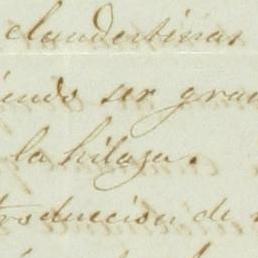 clandestinas
iendo ser grav
la hilaza.
troduccion de